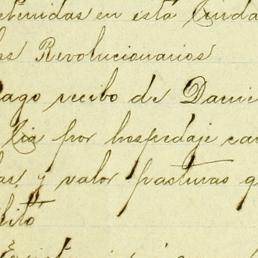 etenidas en esta Ciuda
os Revolucionarios
ago recibo de Dami
Cia por hospedaje ca
as y valor pasturas q
bito